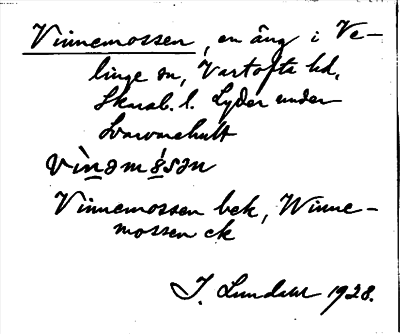 Vinnemossen, en äng i Ve-
linge sn, Vartofta hd,
Skarab. l. Lyder under
Svarvarehult
vìnəmósən
Vinnemossen bek, Winne-
mossen ek
J. Lundahl 1928.